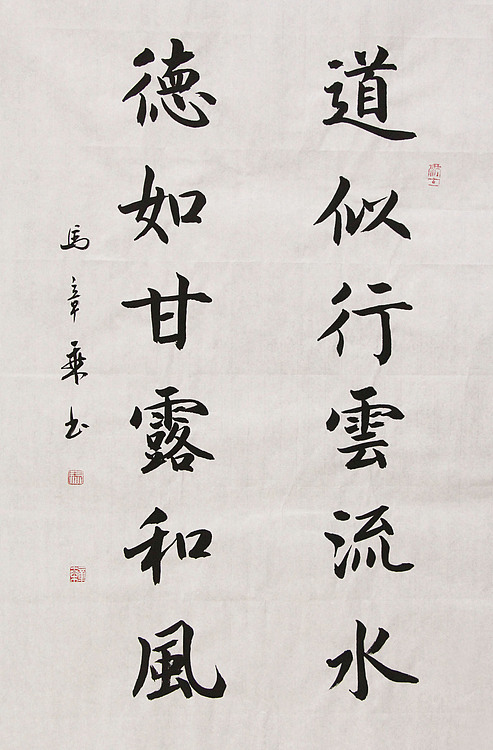 道似行雲流水
德如甘露和風
馬章乘书